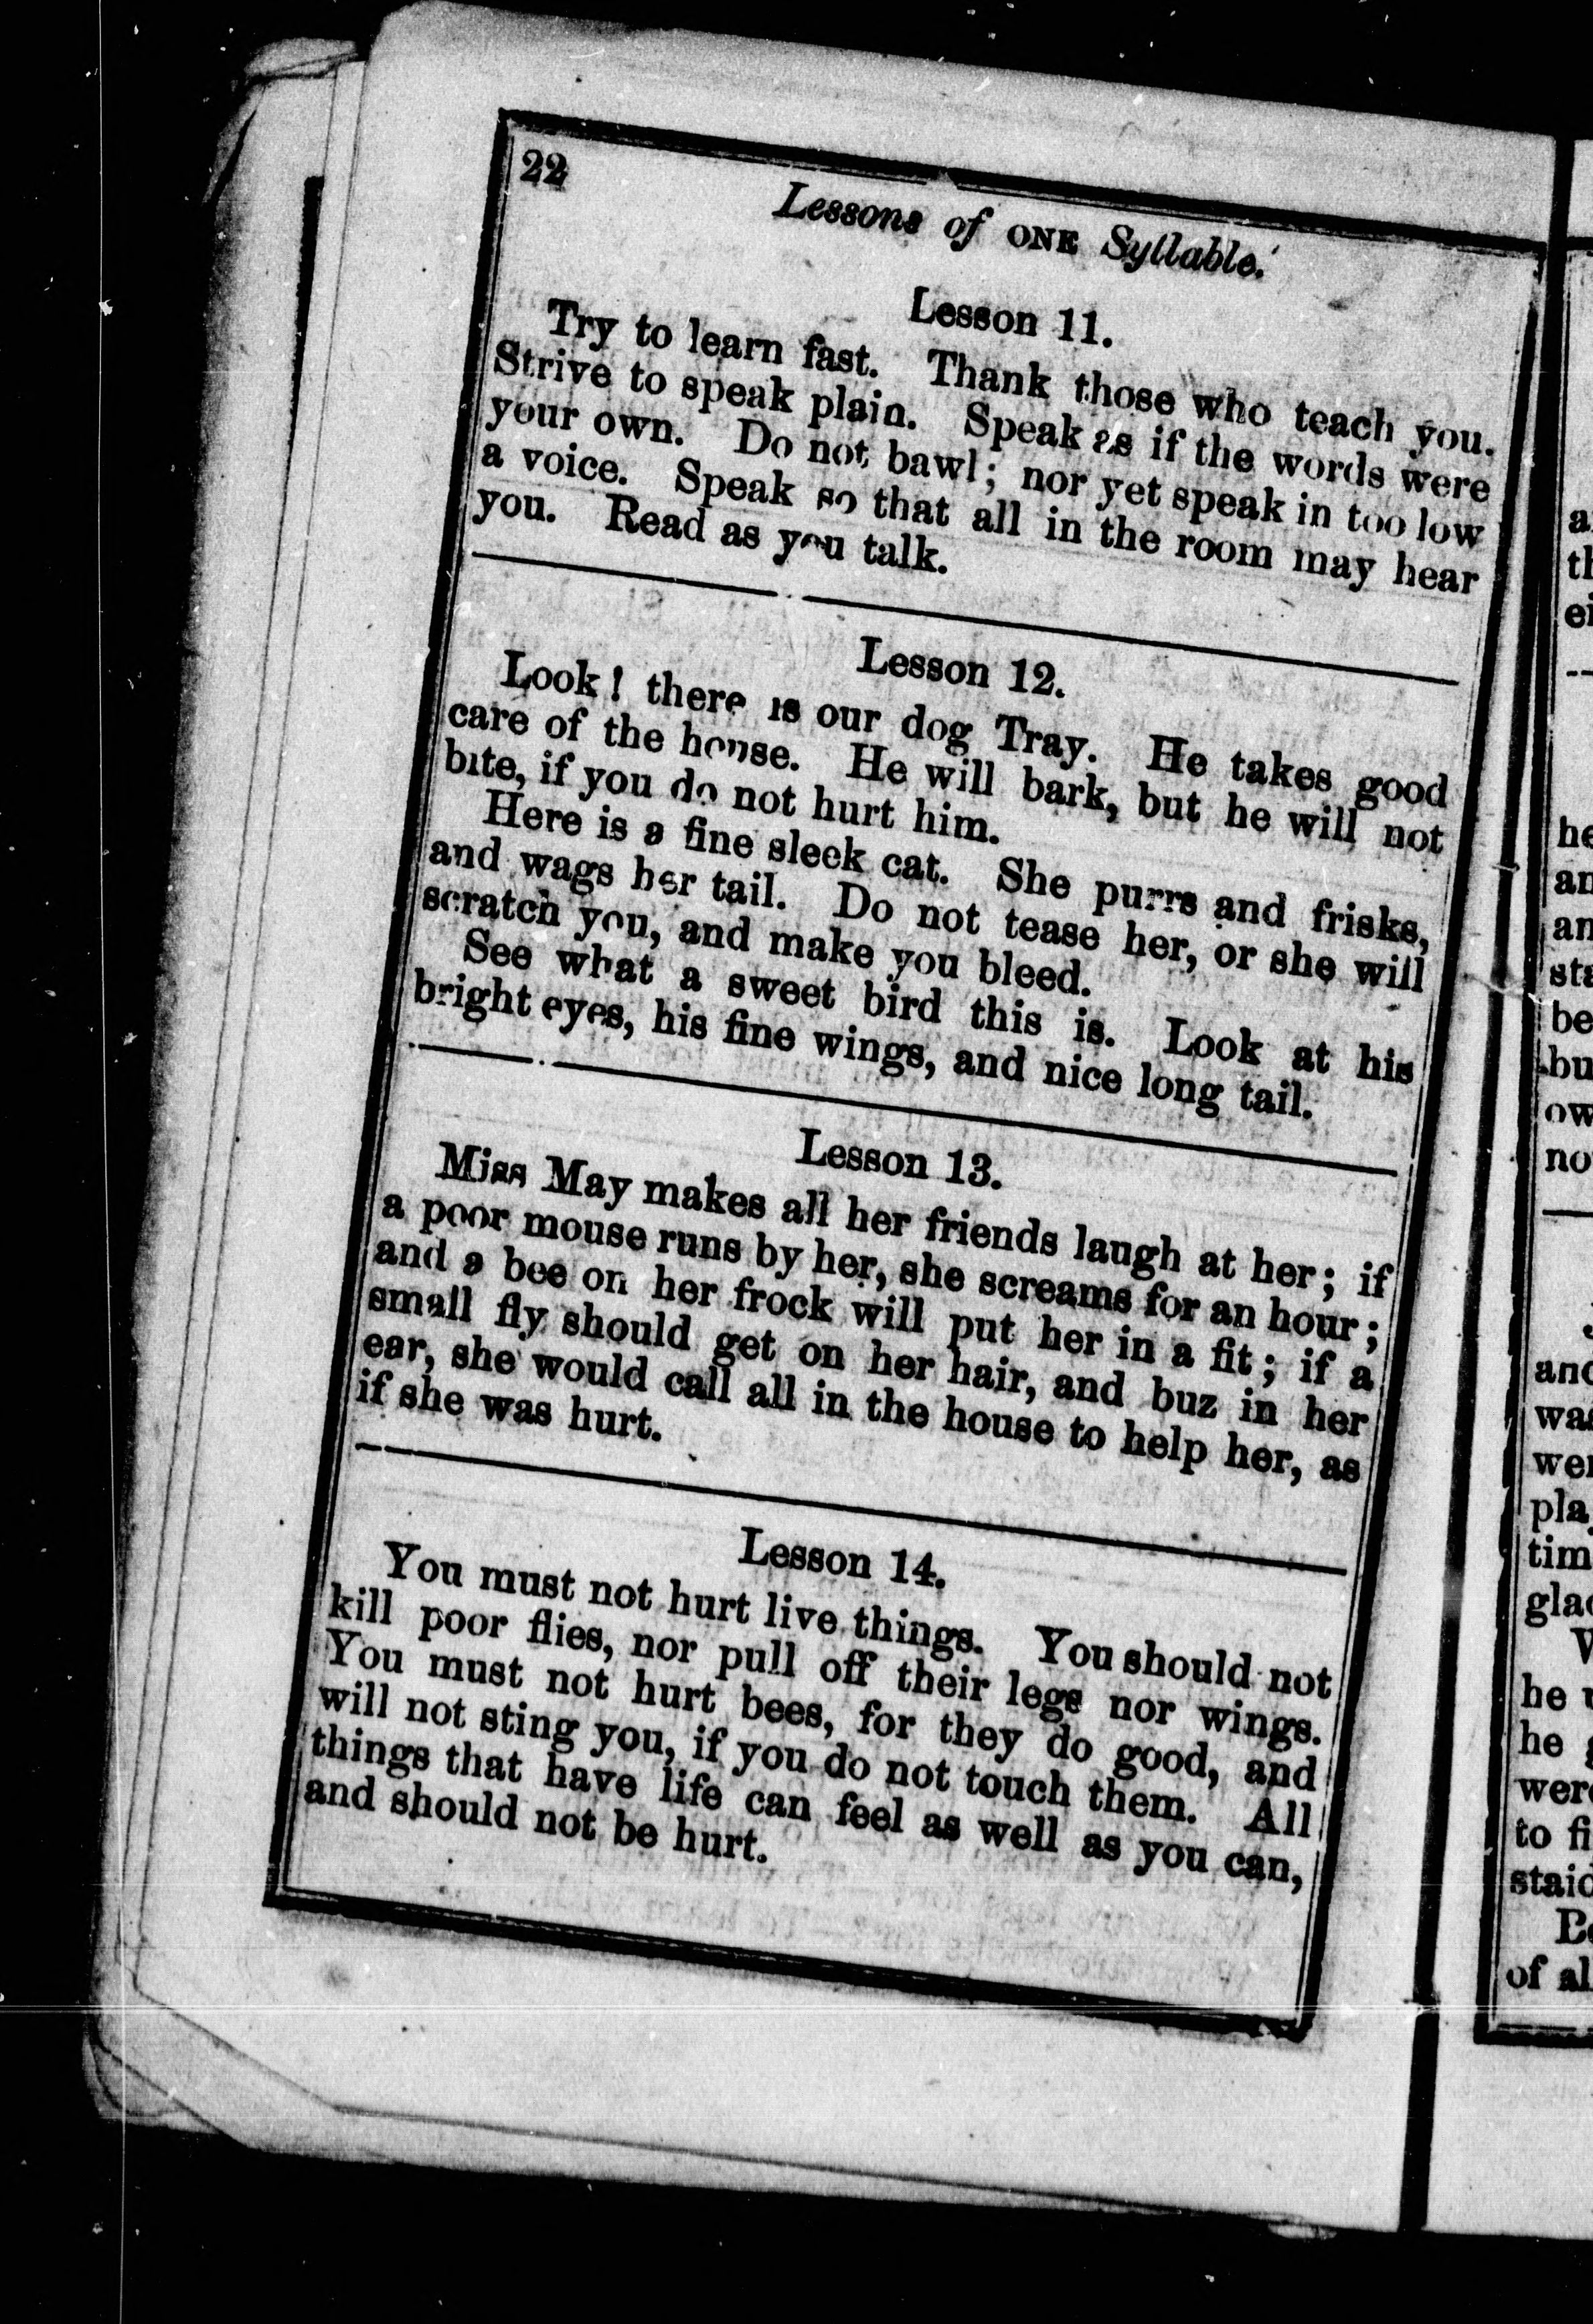 22
Lessons of ONE Syllable.
Lesson 11.
Try to learn fast. Thank those who teach you.
Strive to speak plain. Speak as if the words were
your own. Do not bawl; nor yet speak in too low
a voice. Speak so that all in the room may hear
you. Read as you talk.
Lesson 12.
Look! there is our dog Tray. He takes good
care of the house. He will bark, but he will not
bite, if you do not hurt him.
Here is a fine sleek cat. She purrs and frisks,
and wags her tail. Do not tease her, or she will
scratch you, and make you bleed.
See what a sweet bird this is. Look at his
bright eyes, his fine wings, and nice long tail.
Lesson 13.
Miss May makes all her friends laugh at her; if
a poor mouse runs by her, she screams for an hour;
and a bee on her frock will put her in a fit; if a
small fly should get on her hair, and buz in her
ear, she would call all in the house to help her, as
if she was hurt.
Lesson 14.
You must not hurt live things. You should not
kill poor flies, nor pull off their legs nor wings.
You must not hurt bees, for they do good, and
will not sting you, if you do not touch them. All
things that have life can feel as well as you can,
and should not be hurt.
a
th
ei
he
an
an
sta
be
bu
ow
no
and
was
wer
pla
tim
glad
he
he
were
to fi
staid
of al